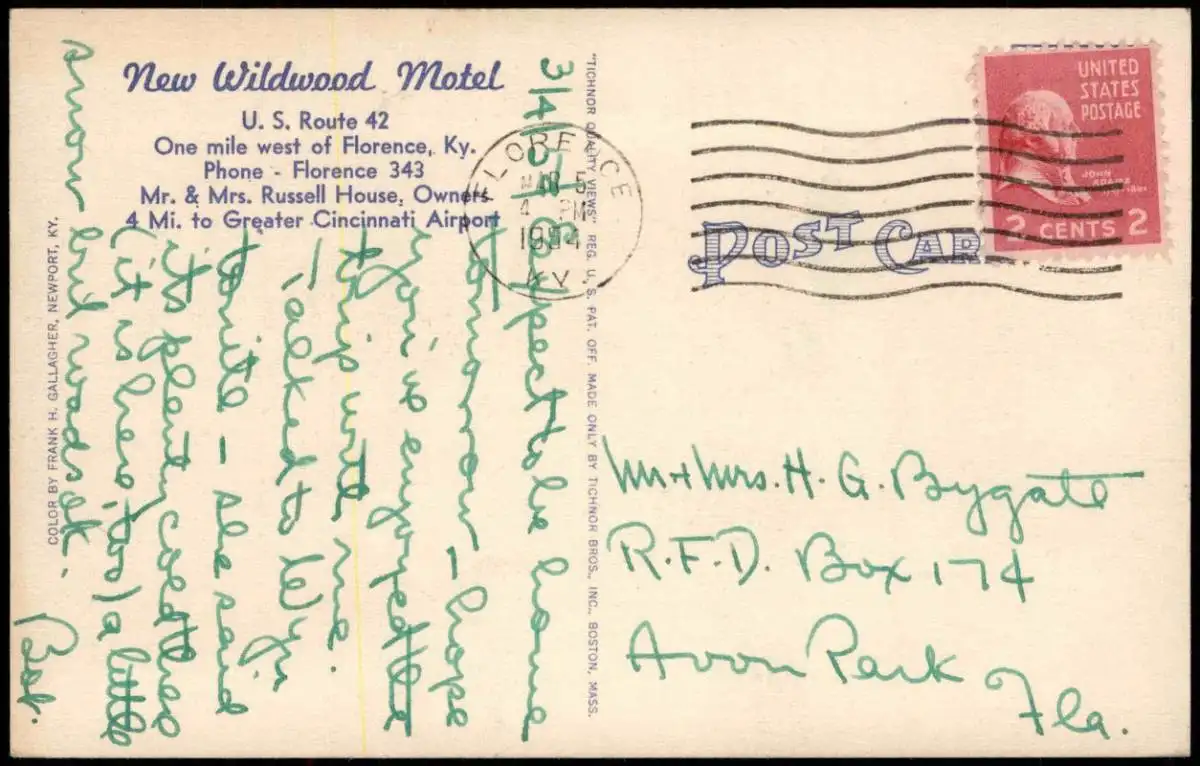 New Wildwood Motel
U. S. Route 42
One mile west of Florence, Ky.
Phone - Florence 343
Mr. & Mrs. Russell House, Owners
4 Mi. to Greater Cincinnati Airport
COLOR BY FRANK H. GALLAGHER, NEWPORT, KY.
3/4/54 Expect to be home
tomorrow - hope
you've enjoyed the
trip with me.
Talked to
tonite - she said
its plenty cold there
(it is here, too) a little
snow but roads ok.
Bob.
"TICHNOR QUALITY VIEWS" REG. U. S. PAT. OFF. MADE ONLY BY TICHNOR BROS., INC., BOSTON, MASS.
FLORENCE
MAR 5
4 PM
1954
KY.
POST CAR
UNITED
STATES
POSTAGE
JOHN
ADAMS
2 CENTS 2
Mr + Mrs. H. G. Bygate
R.F.D. Box 174
Avon Park
Fla.